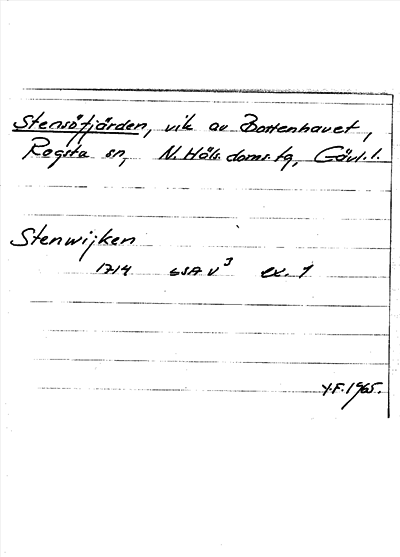 Stensöfjärden, vik av Bottenhavet,
Rogsta sn, N. Häls. doms. tg, Gävl. l.
Stenwijken
1714 GSA V³ ex. 1
Y.F. 1965.